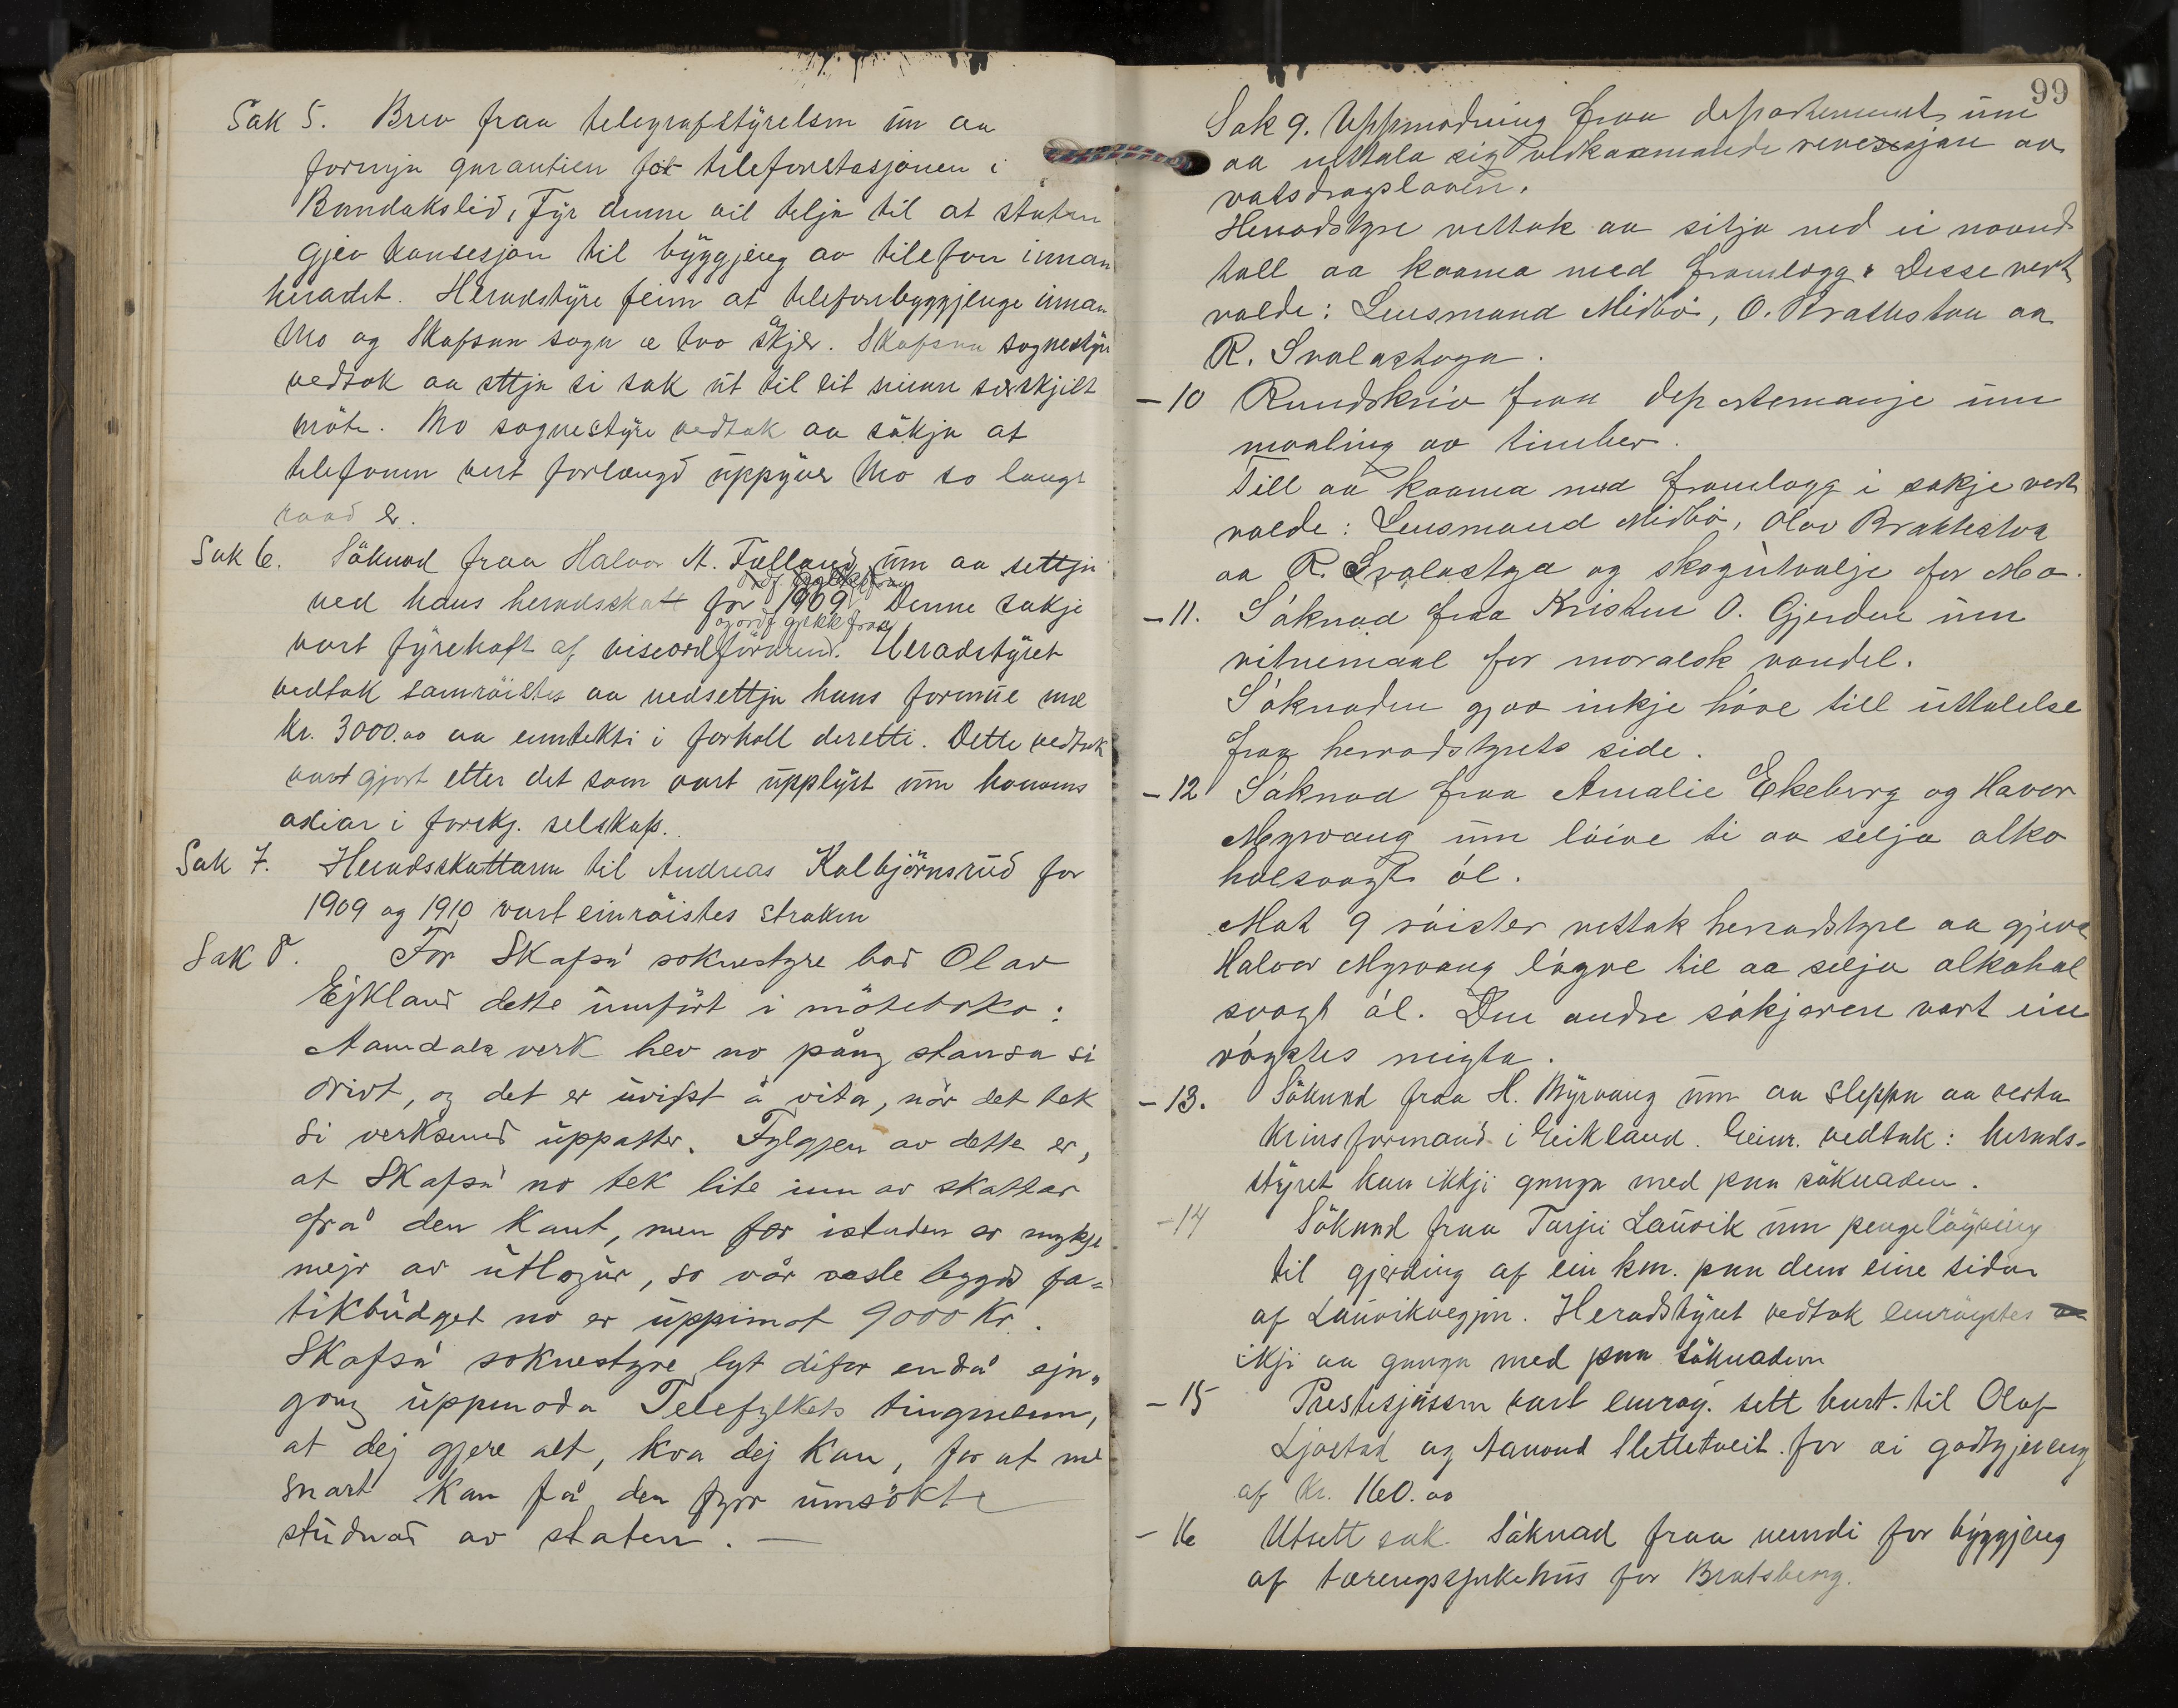 Sak 5. Brev fraa telegrafstyrelsen um aa
fornyja garantien for telefonstasjonen i
Bandakslid, Fyr denne vil telja til at staten
gjev konsesjon til byggjeng av telefon innan
heradet. Heradstyre feim at telefonbyggjenge innan
Mo og Skafsaa sogn æ tvo skjer. Skafsaa sognestyre
vedtok aa settja si sak ut til eit seinare serskjilt
möte. Mo sognestyre vedtok aa sökja at
telefonen vert forlengd uppyver Mo so langt
raad er.
Sak 6. Söknad fraa Halvor A. Tælland um aa settja
ned hans heradsskatt for 1909. Denne sakje
ogordf gjekk fraa
vart fyrehaft af viseordförarend. Heradstyret
vedtok samröistes aa nedsettja hans formue med
Kr. 3000.00 aa enntekti i forholl deretti. Dette vedtak
vart gjort etter det som vart upplyst um honoms
axiar i forskj. selskap.
Sak 7. Heradsskattann til Andreas Kolbjörnsrud for
1909 og 1910 vart einröistes stroken
Sak 8. For Skafså soknestyre bad Olav
Ejkland dette umfört i möteboka:
Aamdals verk hev no pång stansa si
drivt, og det er uvisst å vita, når det tek
si verksemd uppatter. Fylgjen av dette er,
at Skafså no tek lite inn av skattar
frå den kant, men fær istaden so mykje
mejr av utlogur, so vår vesle bygds fa-
tikbudget no er uppimot 9000 Kr.
Skafså soknestyre lyt difor endå ejn„
gong uppmoda Telefylkets tingmenn,
at dej gjere alt, kva dej kan, for at me
snart kan få den fyrr umsökte
studnad av staten. —
99
Sak 9. Uppmodning fraa departementet um
aa uttala sig vedkaamande revesjon av
vatsdragsloven.
Heradstyre vettok aa sitja ned ei naavnd
till aa kaama med framlegg. Desse vert
valde: Lensmand Midbö, O. Brattestaa aa
R. Svalastoga.
— 10 Rundskriv fraa departemanje um
maaling av timber.
Till aa kaama med framlegg i sakje vert
valde: Lensmand Midbö, Olav Brattestaa
aa R. Svalastoga og skogutvalje for Mo.
— 11. Söknad fraa Kristen O. Gjerdve um
vitnemaal for moralsk vandel.
Söknaden gjev inkje höve till uttalelse
fraa herradstyrets side.
— 12 Söknad fraa Amalie Ekeberg og Havor
Myrvang um löive ti aa selja alko
holsvagt öl.
Mot 9 röister vettok herradstyre aa gjeva
Halvor Myrvang lögve til aa selja alkohol
svagt öl. Den andre sökjaren vart ein
rögstes neigta.
— 13. Söknad fraa H. Myrvang um aa sleppa aa verta
Krinsformand i Eikland. Einr. vedtak: herads-
styret kan ikkji gange med paa söknaden.
— 14 Söknad fraa Tarjei Lauvik um pengelöyving
til gjerding af ein km. paa den eine sidun
af Lauvikvegjen. Heradstyret vedtok einröystes
ikji aa ganga med paa söknaden
— 15 Prestesjussen vart einröy. sett burt til Olaf
Ljostad og Aamund Slettetveit for ei godtgjereng
af Kr. 160.00
— 16 Utsett sak. Söknad fraa nemndi for byggjeng
af tæringssjukehus for Bratsberg.